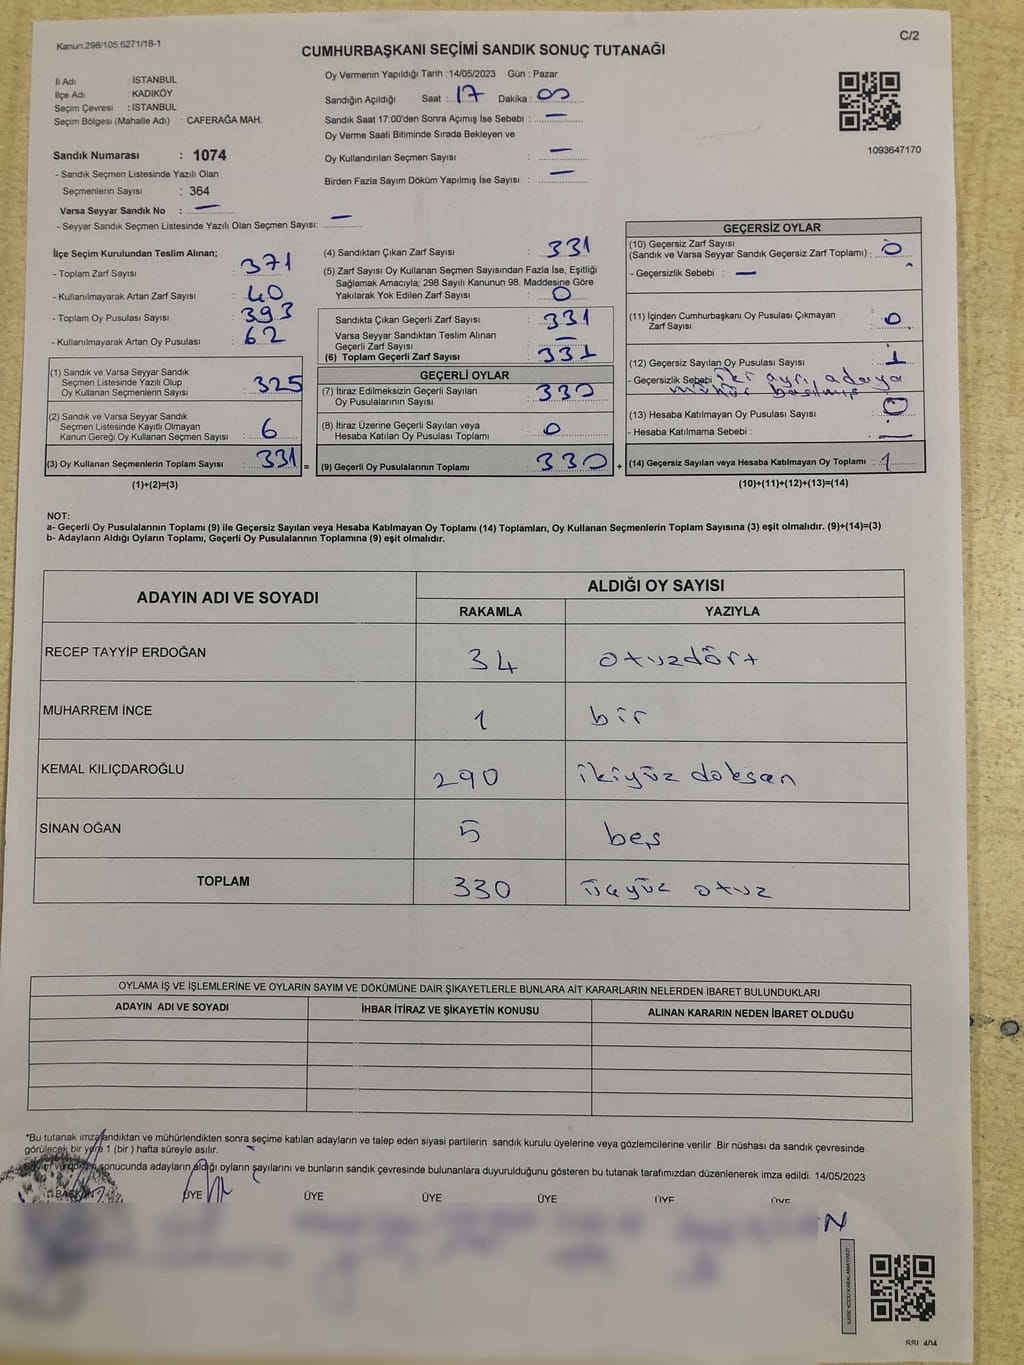 Kanun;298/105,6271/18-1
C/2
CUMHURBAŞKANI SEÇİMİ SANDIK SONUÇ TUTANAĞI
İl Adı : İSTANBUL
İlçe Adı : KADIKÖY
Seçim Çevresi : İSTANBUL
Seçim Bölgesi (Mahalle Adı) : CAFERAĞA MAH.
Sandık Numarası : 1074
- Sandık Seçmen Listesinde Yazılı Olan
Seçmenlerin Sayısı : 364
Varsa Seyyar Sandık No : —
- Seyyar Sandık Seçmen Listesinde Yazılı Olan Seçmen Sayısı: —
Oy Vermenin Yapıldığı Tarih : 14/05/2023 Gün : Pazar
Sandığın Açıldığı Saat : 17 Dakika : 00
Sandık Saat 17:00'den Sonra Açımış İse Sebebi : —
Oy Verme Saati Bitiminde Sırada Bekleyen ve
Oy Kullandırılan Seçmen Sayısı : —
Birden Fazla Sayım Döküm Yapılmış İse Sayısı : —
1093647170
İlçe Seçim Kurulundan Teslim Alınan;
- Toplam Zarf Sayısı : 371
- Kullanılmayarak Artan Zarf Sayısı : 40
- Toplam Oy Pusulası Sayısı : 393
- Kullanılmayarak Artan Oy Pusulası : 62
(1) Sandık ve Varsa Seyyar Sandık
Seçmen Listesinde Yazılı Olup
Oy Kullanan Seçmenlerin Sayısı : 325
(2) Sandık ve Varsa Seyyar Sandık
Seçmen Listesinde Kayıtlı Olmayan
Kanun Gereği Oy Kullanan Seçmen Sayısı : 6
(3) Oy Kullanan Seçmenlerin Toplam Sayısı : 331 =
(1)+(2)=(3)
(4) Sandıktan Çıkan Zarf Sayısı : 331
(5) Zarf Sayısı Oy Kullanan Seçmen Sayısından Fazla İse, Eşitliği
Sağlamak Amacıyla; 298 Sayılı Kanunun 98. Maddesine Göre
Yakılarak Yok Edilen Zarf Sayısı : 0
Sandıkta Çıkan Geçerli Zarf Sayısı : 331
Varsa Seyyar Sandıktan Teslim Alınan
Geçerli Zarf Sayısı : —
(6) Toplam Geçerli Zarf Sayısı : 331
GEÇERLİ OYLAR
(7) İtiraz Edilmeksizin Geçerli Sayılan
Oy Pusulalarının Sayısı : 330
(8) İtiraz Üzerine Geçerli Sayılan veya
Hesaba Katılan Oy Pusulası Toplamı : 0
(9) Geçerli Oy Pusulalarının Toplamı : 330 +
GEÇERSİZ OYLAR
(10) Geçersiz Zarf Sayısı
(Sandık ve Varsa Seyyar Sandık Geçersiz Zarf Toplamı) : 0
- Geçersizlik Sebebi : —
(11) İçinden Cumhurbaşkanı Oy Pusulası Çıkmayan
Zarf Sayısı : 0
(12) Geçersiz Sayılan Oy Pusulası Sayısı : 1
- Geçersizlik Sebebi iki ayrı adaya
mühür basılmış
(13) Hesaba Katılmayan Oy Pusulası Sayısı : 0
- Hesaba Katılmama Sebebi : —
(14) Geçersiz Sayılan veya Hesaba Katılmayan Oy Toplamı : 1
(10)+(11)+(12)+(13)=(14)
NOT:
a- Geçerli Oy Pusulalarının Toplamı (9) ile Geçersiz Sayılan veya Hesaba Katılmayan Oy Toplamı (14) Toplamları, Oy Kullanan Seçmenlerin Toplam Sayısına (3) eşit olmalıdır. (9)+(14)=(3)
b- Adayların Aldığı Oyların Toplamı, Geçerli Oy Pusulalarının Toplamına (9) eşit olmalıdır.
ADAYIN ADI VE SOYADI
ALDIĞI OY SAYISI
RAKAMLA YAZIYLA
RECEP TAYYİP ERDOĞAN 34 otuzdört
MUHARREM İNCE 1 bir
KEMAL KILIÇDAROĞLU 290 ikiyüz doksan
SİNAN OĞAN 5 beş
TOPLAM 330 üçyüz otuz
OYLAMA İŞ VE İŞLEMLERİNE VE OYLARIN SAYIM VE DÖKÜMÜNE DAİR ŞİKAYETLERLE BUNLARA AİT KARARLARIN NELERDEN İBARET BULUNDUKLARI
ADAYIN ADI VE SOYADI İHBAR İTİRAZ VE ŞİKAYETİN KONUSU ALINAN KARARIN NEDEN İBARET OLDUĞU
*Bu tutanak imzalandıktan ve mühürlendikten sonra seçime katılan adayların ve talep eden siyasi partilerin sandık kurulu üyelerine veya gözlemcilerine verilir. Bir nüshası da sandık çevresinde
görülecek bir yere 1 (bir) hafta süreyle asılır.
Sayım ve döküm sonucunda adayların aldığı oyların sayılarını ve bunların sandık çevresinde bulunanlara duyurulduğunu gösteren bu tutanak tarafımızdan düzenlenerek imza edildi. 14/05/2023
BAŞKAN ÜYE ÜYE ÜYE ÜYE ÜYE ÜYE
N
KARE KODU KARALAMAYINIZ!